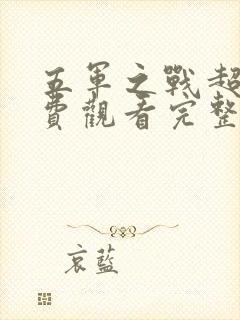 五軍之戰超
費觀看完整
哀藍